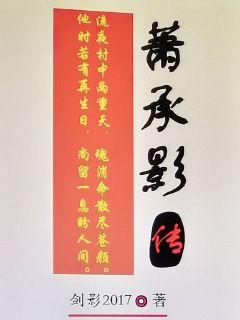 萧承影传
流夜村中两重天，魂消命散尽苍颜。
他时若有再生日，尚留一息盼人间。
剑影2017 著